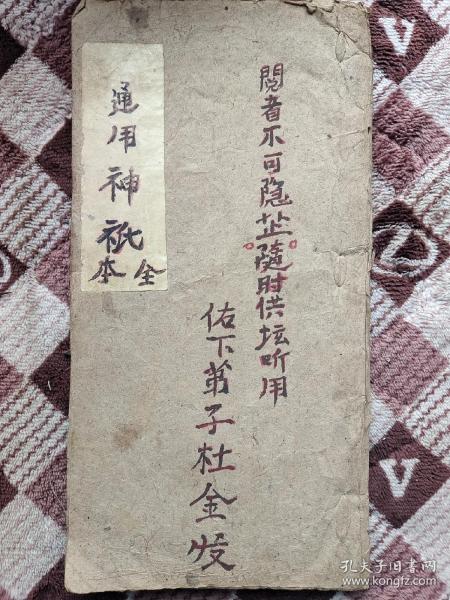 閱者不可隐芷隨时供坛听用
佑下苐子杜金发
通用神祇
全本
V
V
孔夫子旧书网
www.kongfz.com